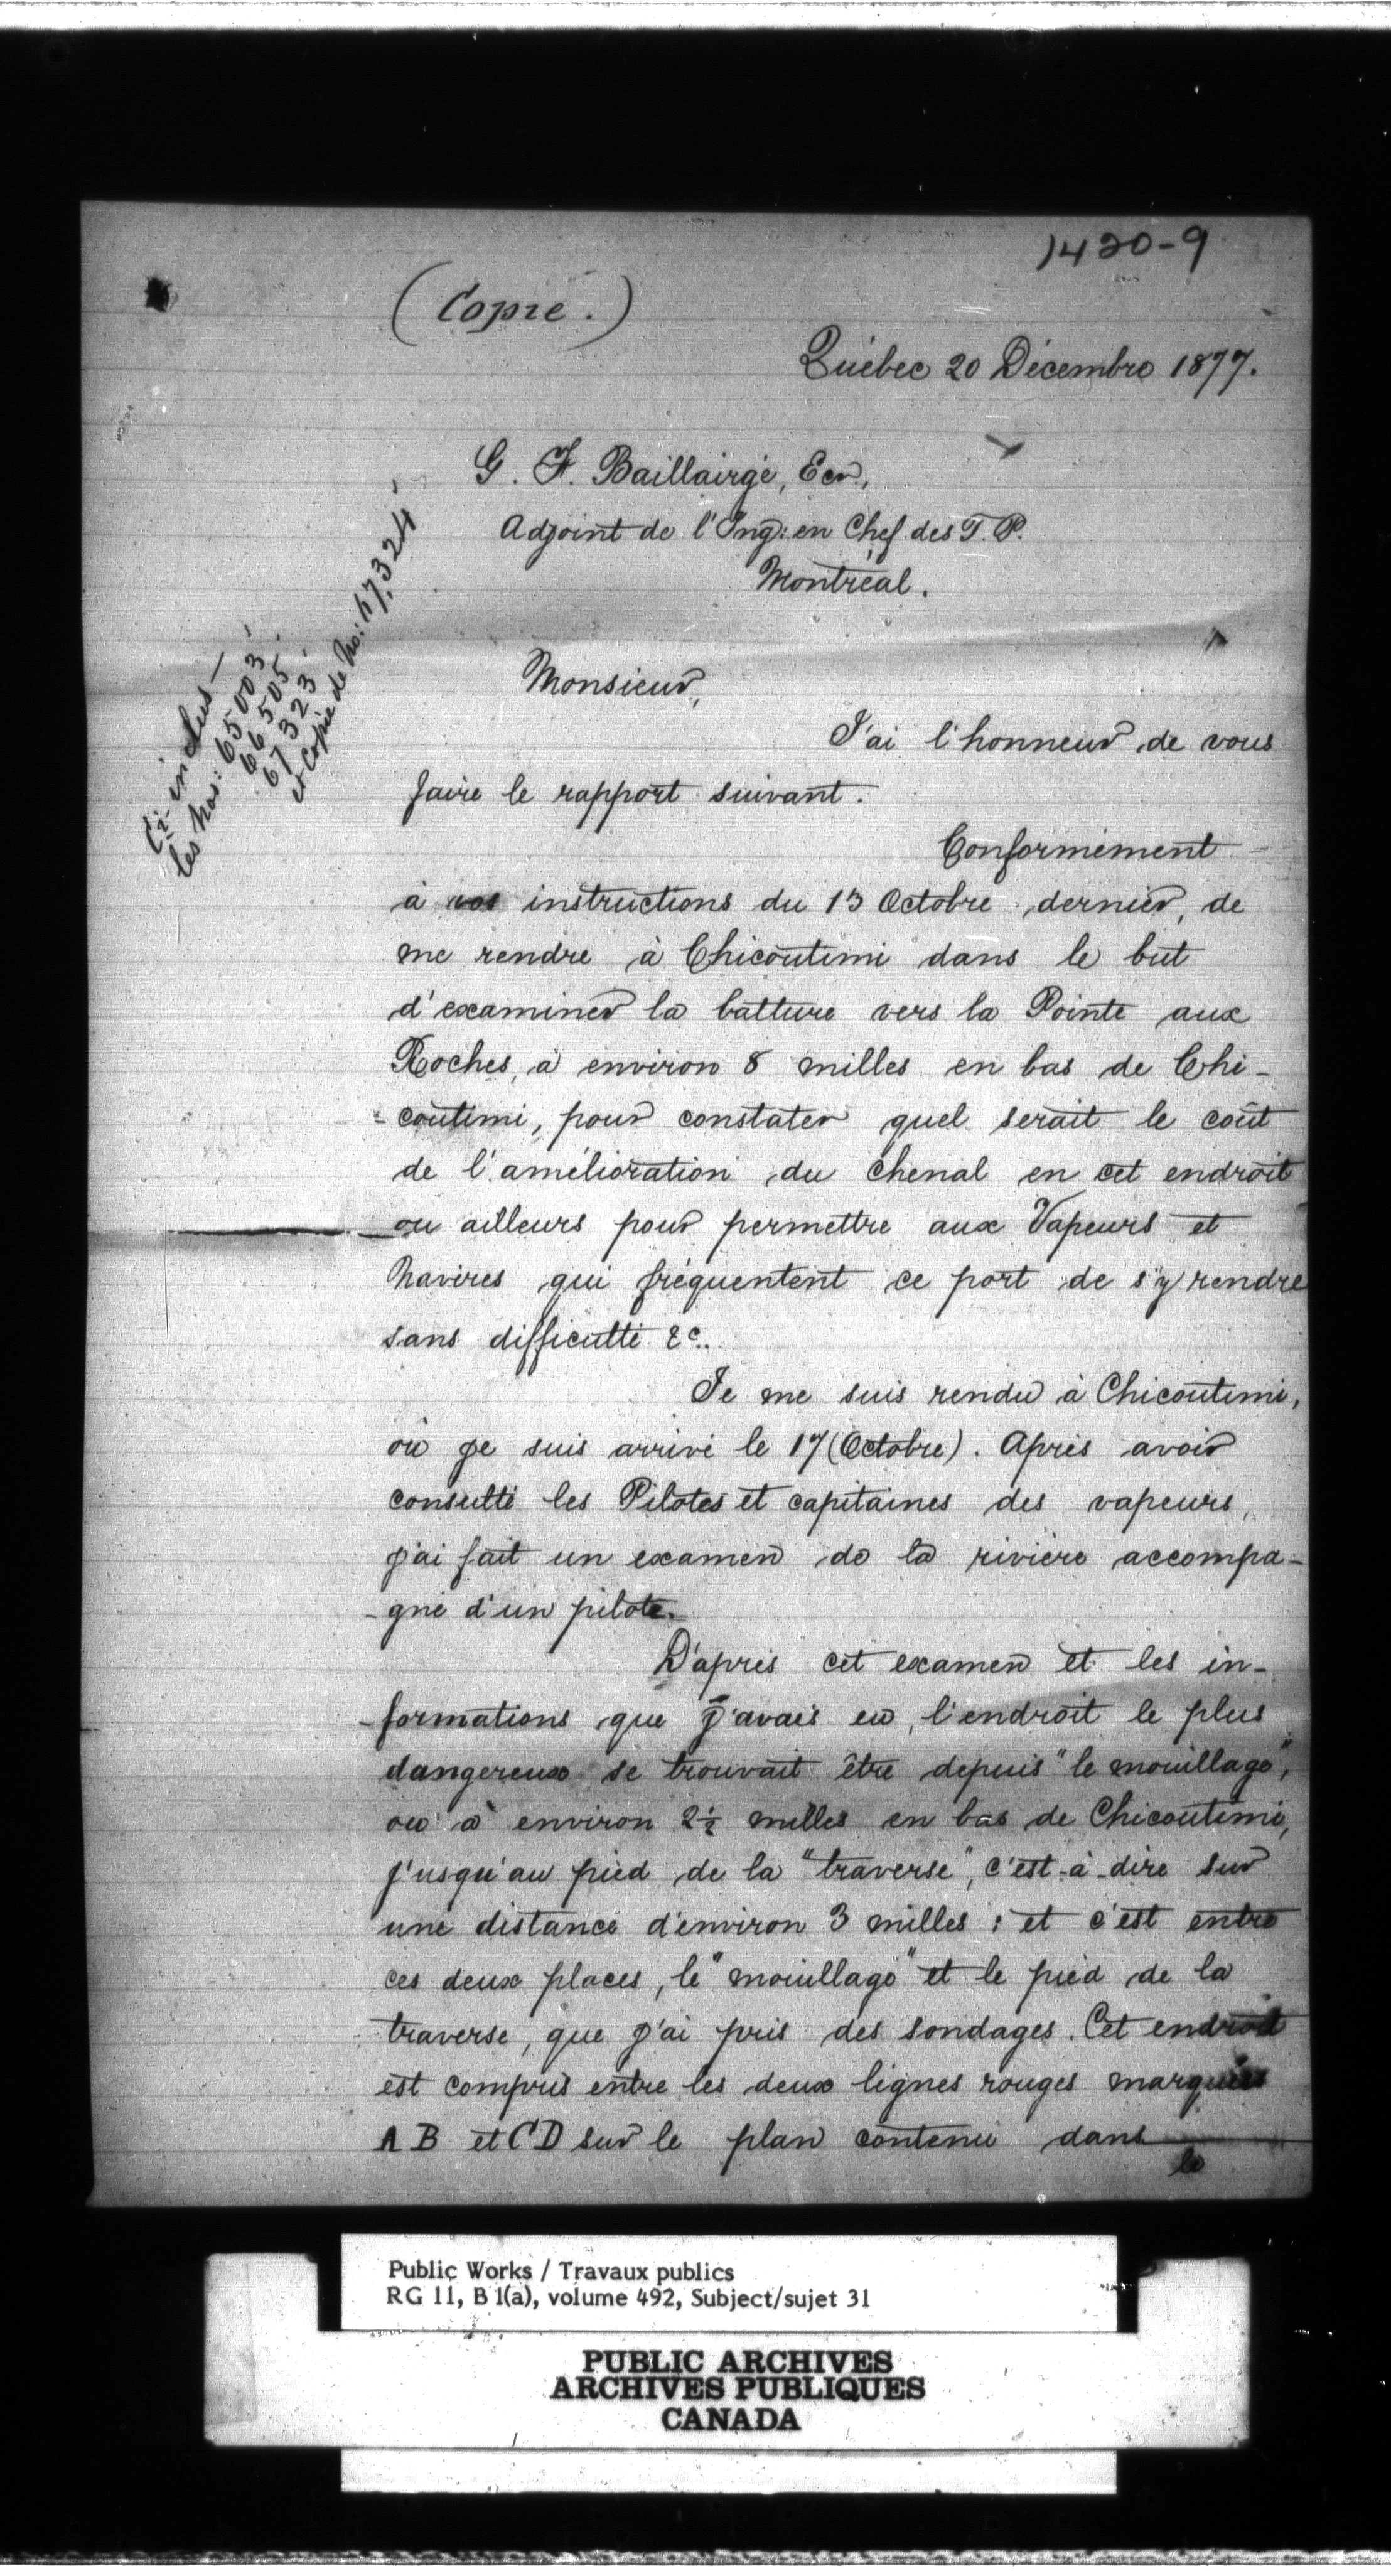 1420-9
(Copie.)
Québec 20 Décembre 1877.
G. F. Baillairgé, Ecr,
Adjoint de l'Ing: en Chef des T. P.
Montréal.
Ci-inclus —
les Nos: 65003
66505
67323
et copie de No: 67,324
Monsieur,
J'ai l'honneur de vous
faire le rapport suivant.
Conformément
à vos instructions du 13 Octobre dernier, de
me rendre à Chicoutimi dans le but
d'examiner la batture vers la Pointe aux
Roches, à environ 8 milles en bas de Chi-
-coutimi, pour constater quel serait le coût
de l'amélioration du chenal en cet endroit
ou ailleurs pour permettre aux Vapeurs et
Navires qui fréquentent ce port de s'y rendre
sans difficulté &c..
Je me suis rendu à Chicoutimi,
où je suis arrivé le 17 (Octobre). Après avoir
consulté les Pilotes et capitaines des vapeurs,
j'ai fait un examen de la rivière accompa-
-gné d'un pilote.
D'après cet examen et les in-
-formations que j'avais eu, l'endroit le plus
dangereux se trouvait être depuis "le mouillage",
ou à environ 2½ milles en bas de Chicoutimi,
j'usqu'au pied de la "traverse", c'est-à-dire sur
une distance d'environ 3 milles : et c'est entre
ces deux places, le "mouillage" et le pied de la
traverse, que j'ai pris des sondages. Cet endroit
est compris entre les deux lignes rouges marquées
AB et CD sur le plan contenu dans
le
Public Works / Travaux publics
RG 11, B 1(a), volume 492, Subject/sujet 31
PUBLIC ARCHIVES
ARCHIVES PUBLIQUES
CANADA